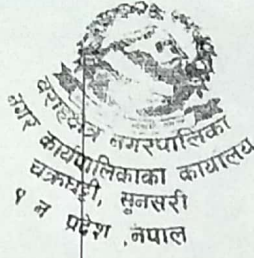 वराहक्षेत्र नगरपालिका
नगर कार्यपालिकाको कार्यालय
चक्रघट्टी, सुनसरी
१ नं प्रदेश ,नेपाल